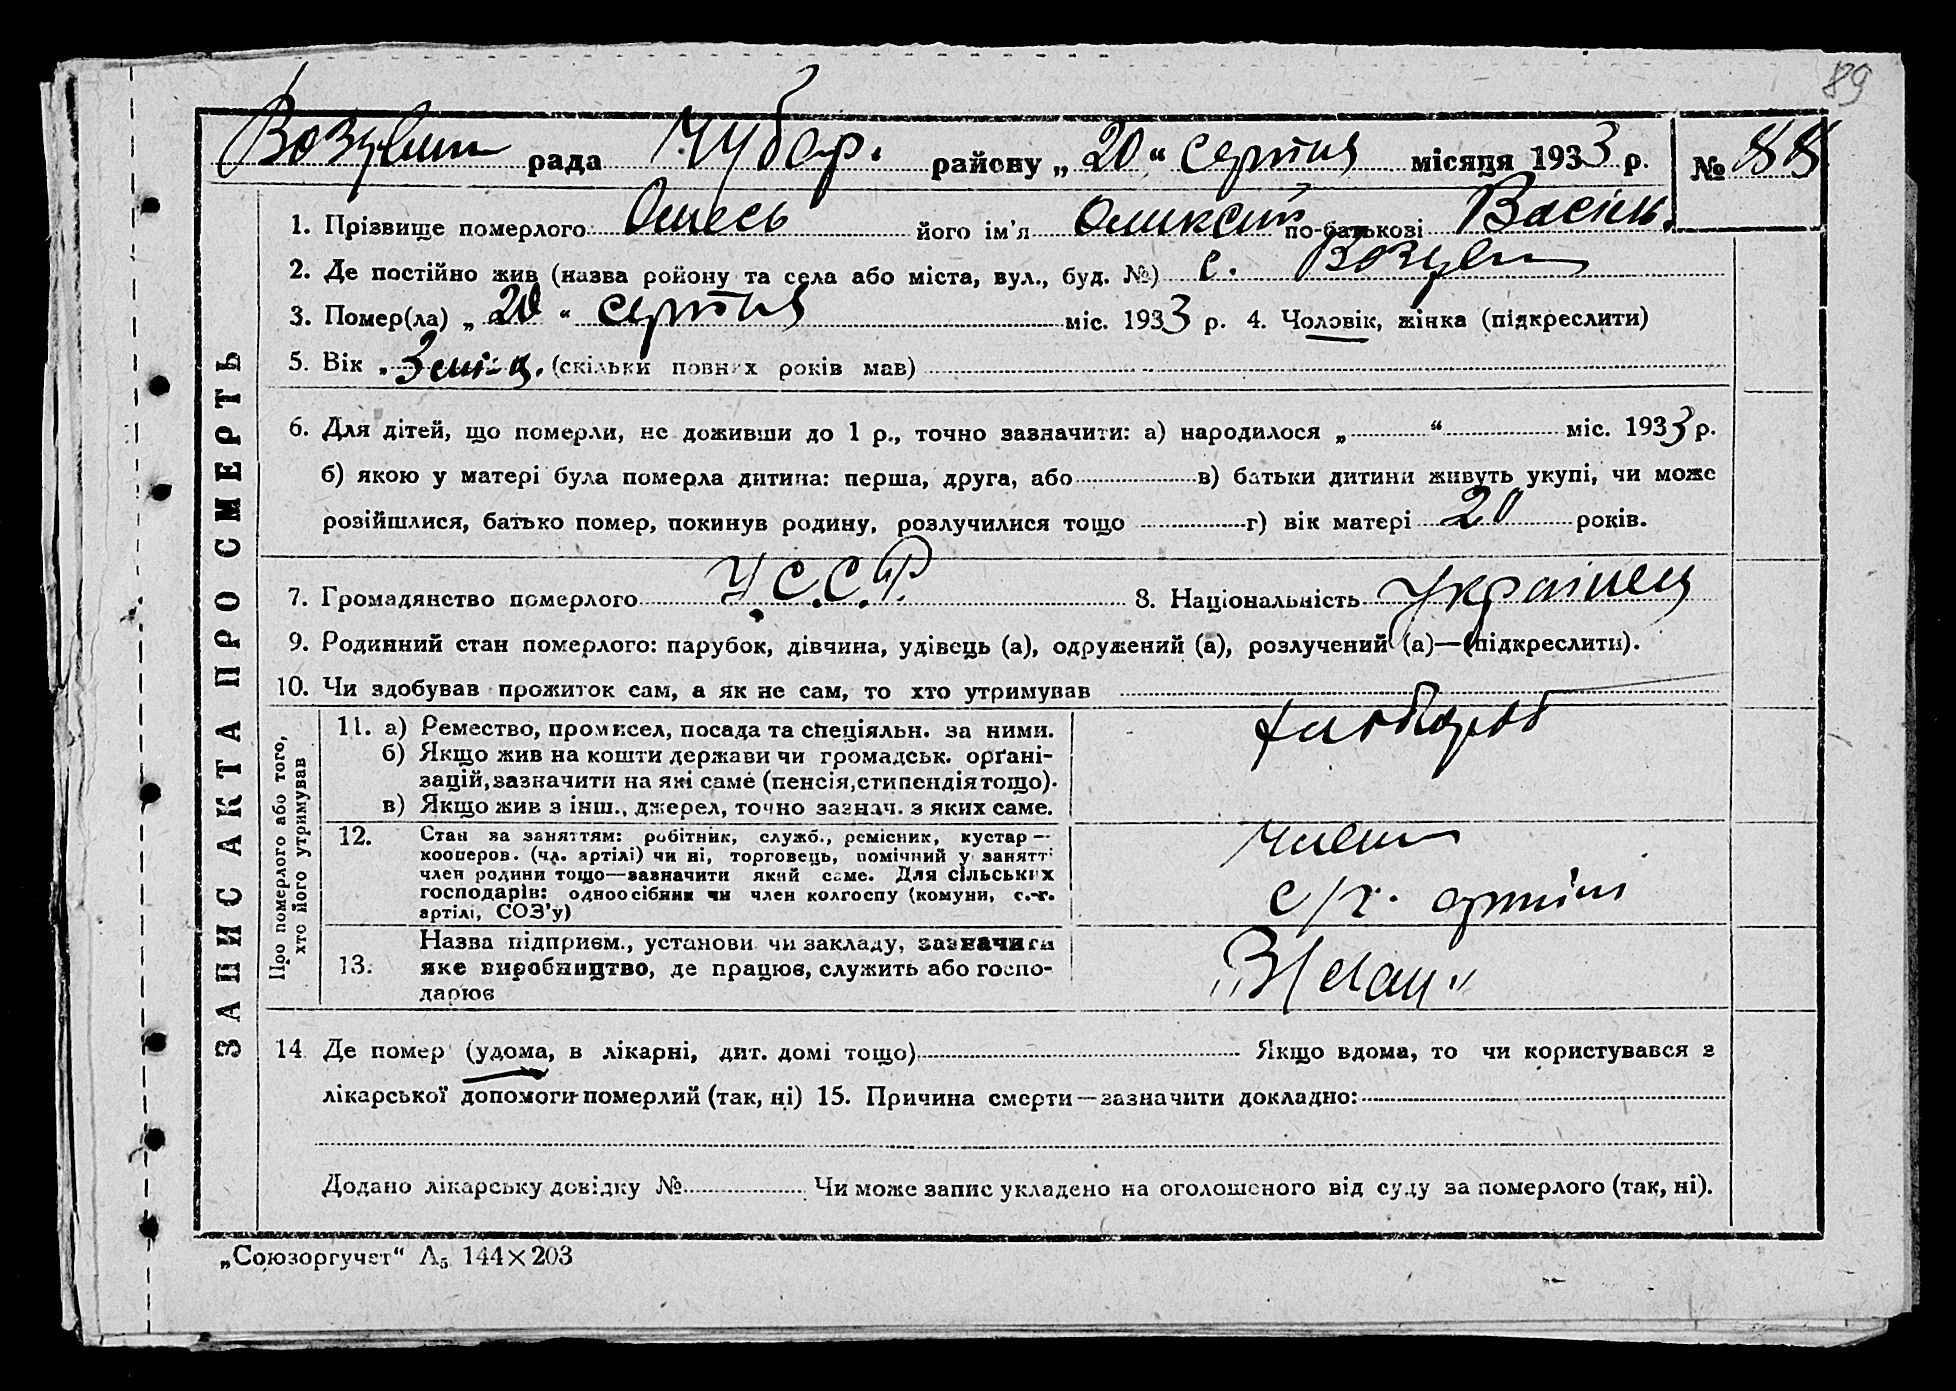 89
Вовчин рада Чубар. району „20“ серпня місяця 1933 р. № 88
1. Прізвище померлого Олесь його ім'я Оликсій по-батькові Васіль.
2. Де постійно жив (назва району та села або міста, вул., буд. №) с.
3. Помер(ла) „20“ серпня міс. 1933 р. 4. Чоловік, жінка (підкреслити)
5. Вік „ (скільки повних років мав)
6. Для дітей, що померли, не доживши до 1 р., точно зазначити: а) народилося „ “ міс. 1933 р.
б) якою у матері була померла дитина: перша, друга, або в) батьки дитини живуть укупі, чи може
розійшлися, батько помер, покинув родину, розлучилися тощо г) вік матері 20 років.
7. Громадянство померлого У.С.С.Р. 8. Національність Українець
9. Родинний стан померлого: парубок, дівчина, удівець (а), одружений (а), розлучений (а)—(підкреслити).
10. Чи здобував прожиток сам, а як не сам, то хто утримував
ЗАПИС АКТА ПРО СМЕРТЬ
Про померлого або того,
хто його утримував
11. а) Ремество, промисел, посада та спеціяльн. за ними. хлібороб
б) Якщо жив на кошти держави чи громадськ. орґані-
зацій, зазначити на які саме (пенсія, стипендія тощо).
в) Якщо жив з інш., джерел, точно зазнач. з яких саме.
12. Стан за заняттям: робітник, служб., ремісник, кустар— член
кооперов. (чл. артілі) чи ні, торговець, помічний у занятті
член родини тощо—зазначити який саме. Для сільських
господарів: одноосібник чи член колгоспу (комуни, с.-г. с/г. артілі
артілі, СОЗ'у)
Назва підприєм., установи чи закладу, зазначити
13. яке виробництво, де працює, служить або госпо-
дарює
14 Де помер (удома, в лікарні, дит. домі тощо) Якщо вдома, то чи користувався з
лікарської допомоги померлий (так, ні) 15. Причина смерти—зазначити докладно:
Додано лікарську довідку № Чи може запис укладено на оголошеного від суду за померлого (так, ні).
„Союзоргучет“ А5 144×203